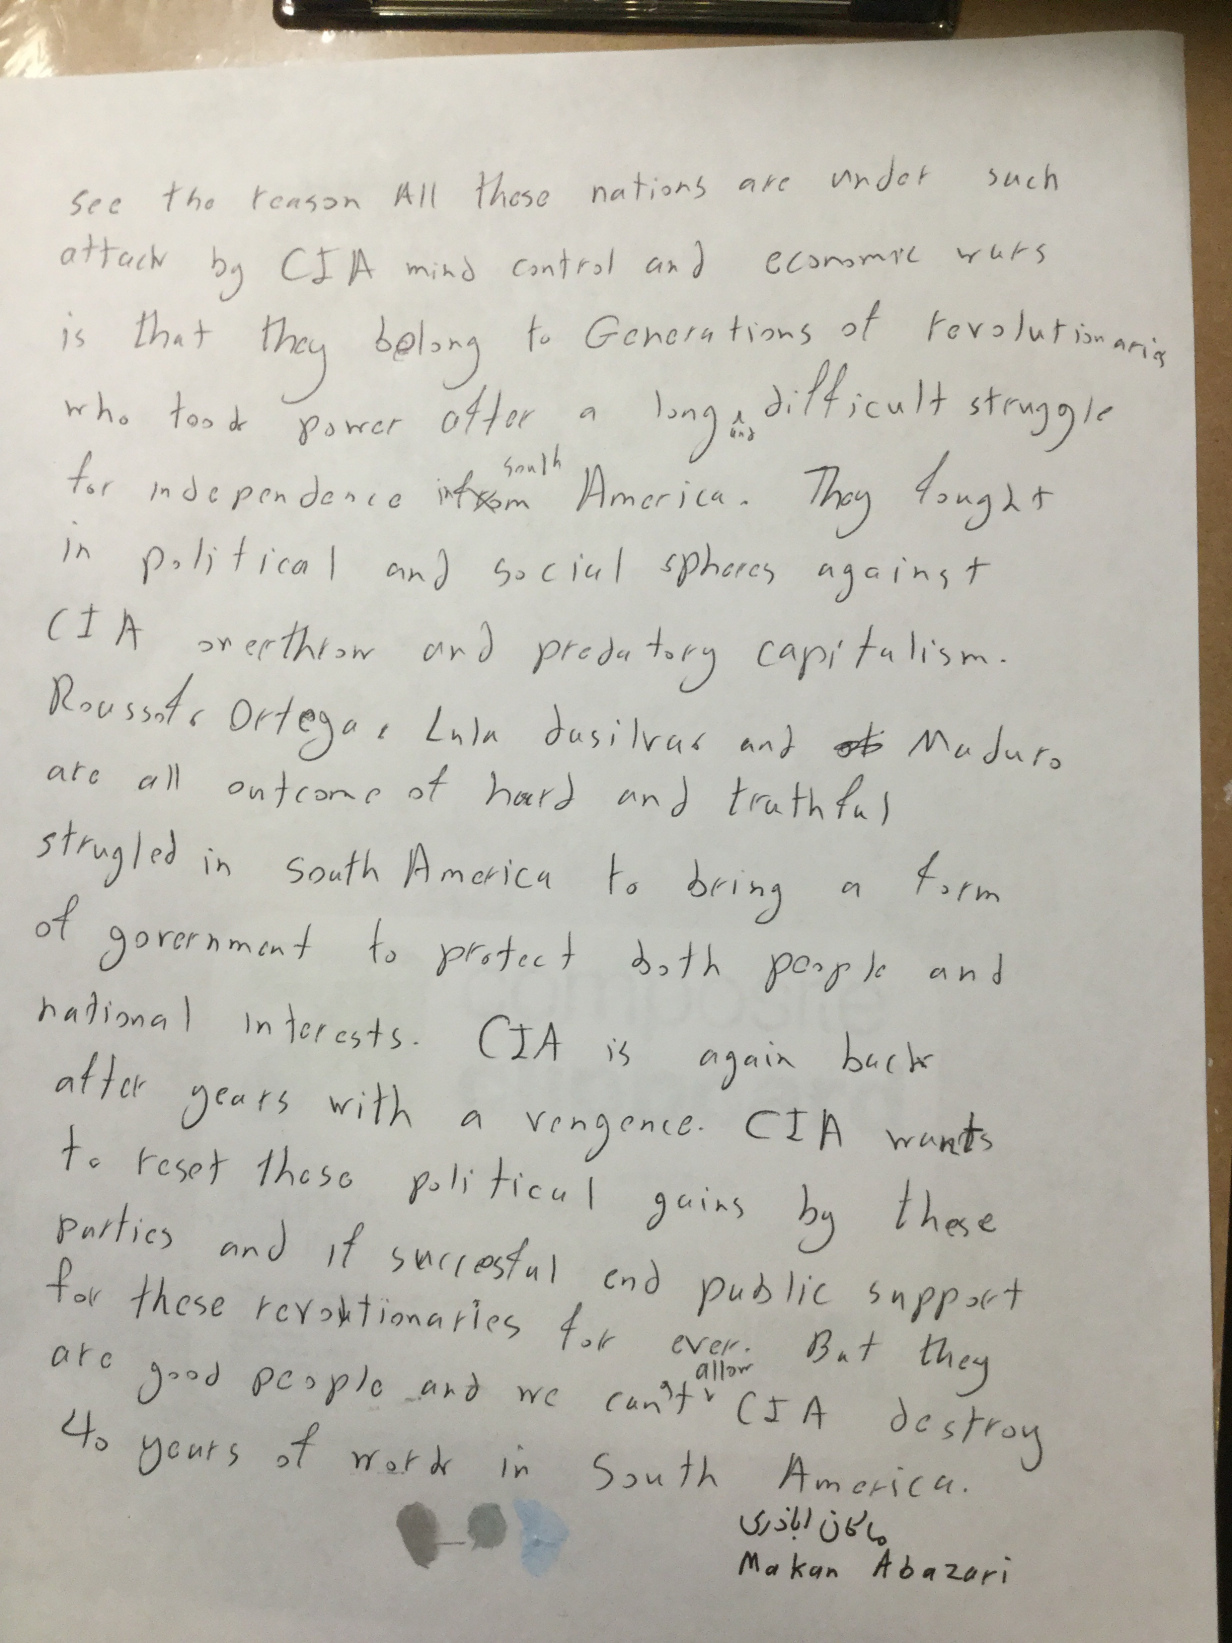 see the reason All these nations are under such
attack by CIA mind control and economic wars
is that they belong to Generations of revolutionaries
who took power after a long and difficult struggle
for independence in south America. They fought
in political and social spheres against
CIA overthrow and predatory capitalism.
Ortega, Lula dasilvas and Maduro
are all outcome of hard and truthful
strugled in south America to bring a form
of government to protect both people and
national interests. CIA is again back
after years with a vengence. CIA wants
to reset those political gains by these
parties and if succesful end public support
for these revolutionaries for ever. But they
are good people and we can't allow CIA destroy
40 years of work in South America.
ماكان اباذرى
Makan Abazari